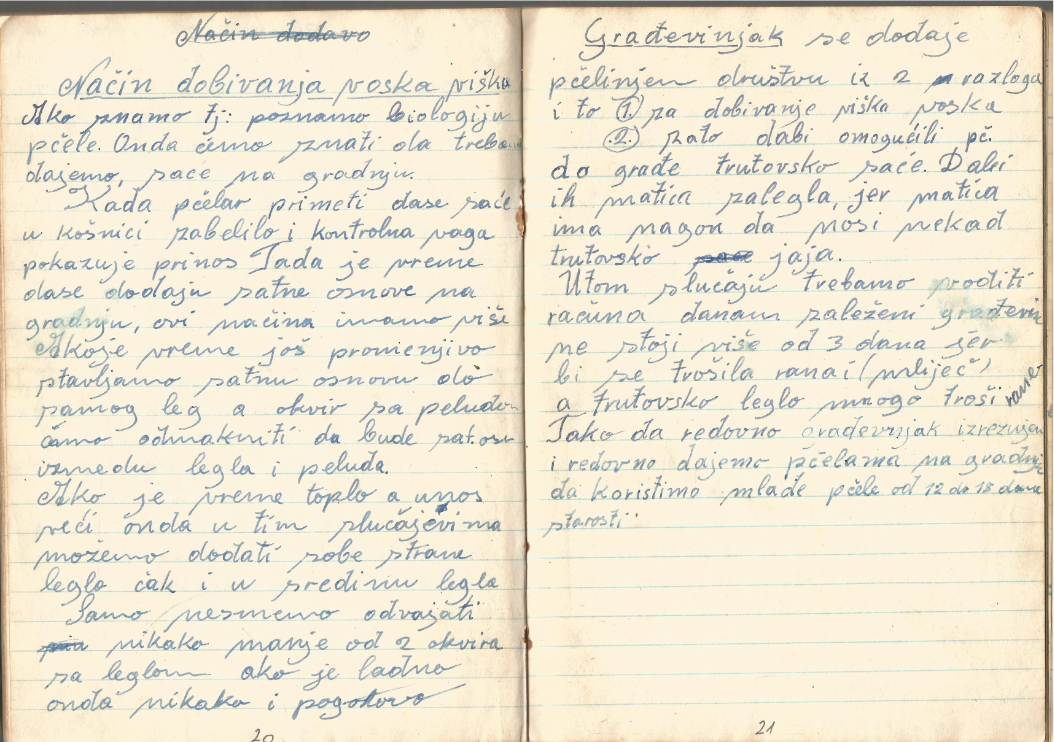 Način dodavo
Način dobivanja voska viška
Ako znamo tj: poznamo biologiju
pčele. Onda ćemo znati da treba
dajemo, saće na gradnju.
Kada pčelar primeti dase saće
u košnici zabelilo i kontrolna vaga
pokazuje prinos Tada je vreme
dase dodaju satne osnove na
gradnju, ovi načina imamo više
Akoje vreme još promenjivo
stavljamo satnu osnovu do
samog leg a okvir sa peludom
ćamo odmaknuti da bude sat.osn
izmeđU legla i peluda.
Ako je vreme toplo a unos
veći onda u tim slučajevima
možemo dodati sobe strane
legla čak i u sredinu legla
Samo nesmemo odvajati
nikako manje od 2 okvira
sa leglom ako je ladno
onda nikako i pogotovo
20
Građevinjak se dodaje
pčelinjem društvu iz 2 razloga
i to 1. za dobivanje viška voska
2. zato dabi omogućili pč.
da grade trutovsko saće. Dabi
ih matica zalegla, jer matica
ima nagon da nosi nekad
trutovsko saće jaja.
Utom slučaju trebamo voditi
računa danam zaleženi građevin
ne stoji više od 3 dana jer
bi se trošila rana i (mliječ)
a trutovsko leglo mnogo troši rane
Tako da redovno građevnjak izrezujem
i redovno dajemo pčelama na gradnju
da koristimo mlade pčele od 12 do 18 dana
starosti
21